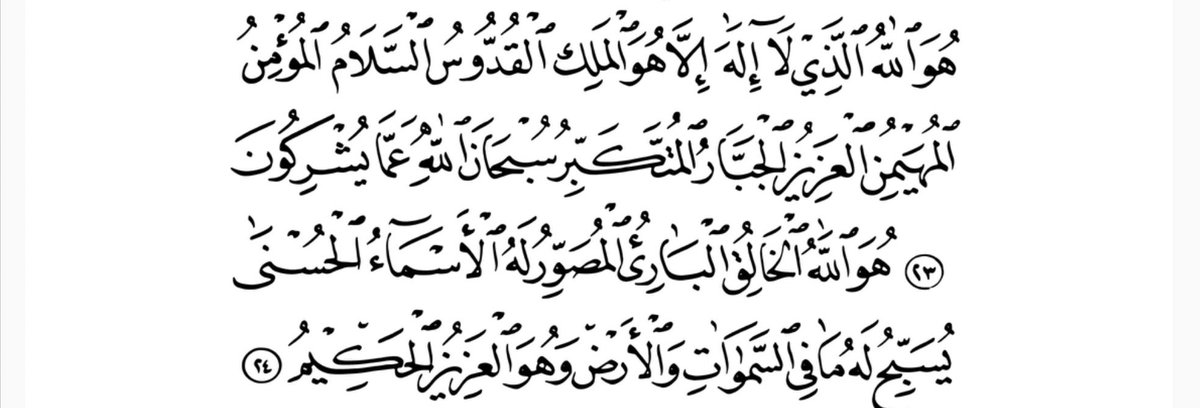 هُوَ ٱللَّهُ ٱلَّذِي لَآ إِلَٰهَ إِلَّا هُوَ ٱلْمَلِكُ ٱلْقُدُّوسُ ٱلسَّلَامُ ٱلْمُؤْمِنُ
ٱلْمُهَيْمِنُ ٱلْعَزِيزُ ٱلْجَبَّارُ ٱلْمُتَكَبِّرُ سُبْحَانَ ٱللَّهِ عَمَّا يُشْرِكُونَ
٢٣ هُوَ ٱللَّهُ ٱلْخَالِقُ ٱلْبَارِئُ ٱلْمُصَوِّرُ لَهُ ٱلْأَسْمَآءُ ٱلْحُسْنَىٰ
يُسَبِّحُ لَهُ مَا فِي ٱلسَّمَٰوَاتِ وَٱلْأَرْضِ وَهُوَ ٱلْعَزِيزُ ٱلْحَكِيمُ ٢٤